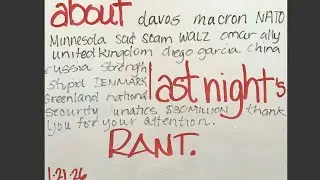 about davos macron NATO
Minnesota sad scam WALZ omar ally
united kingdom diego garcia china
russia strength
stupid DENMARK last night's
Greenland national
security lunatics $30MILLION thank
you for your attention.
RANT.
1·21·26